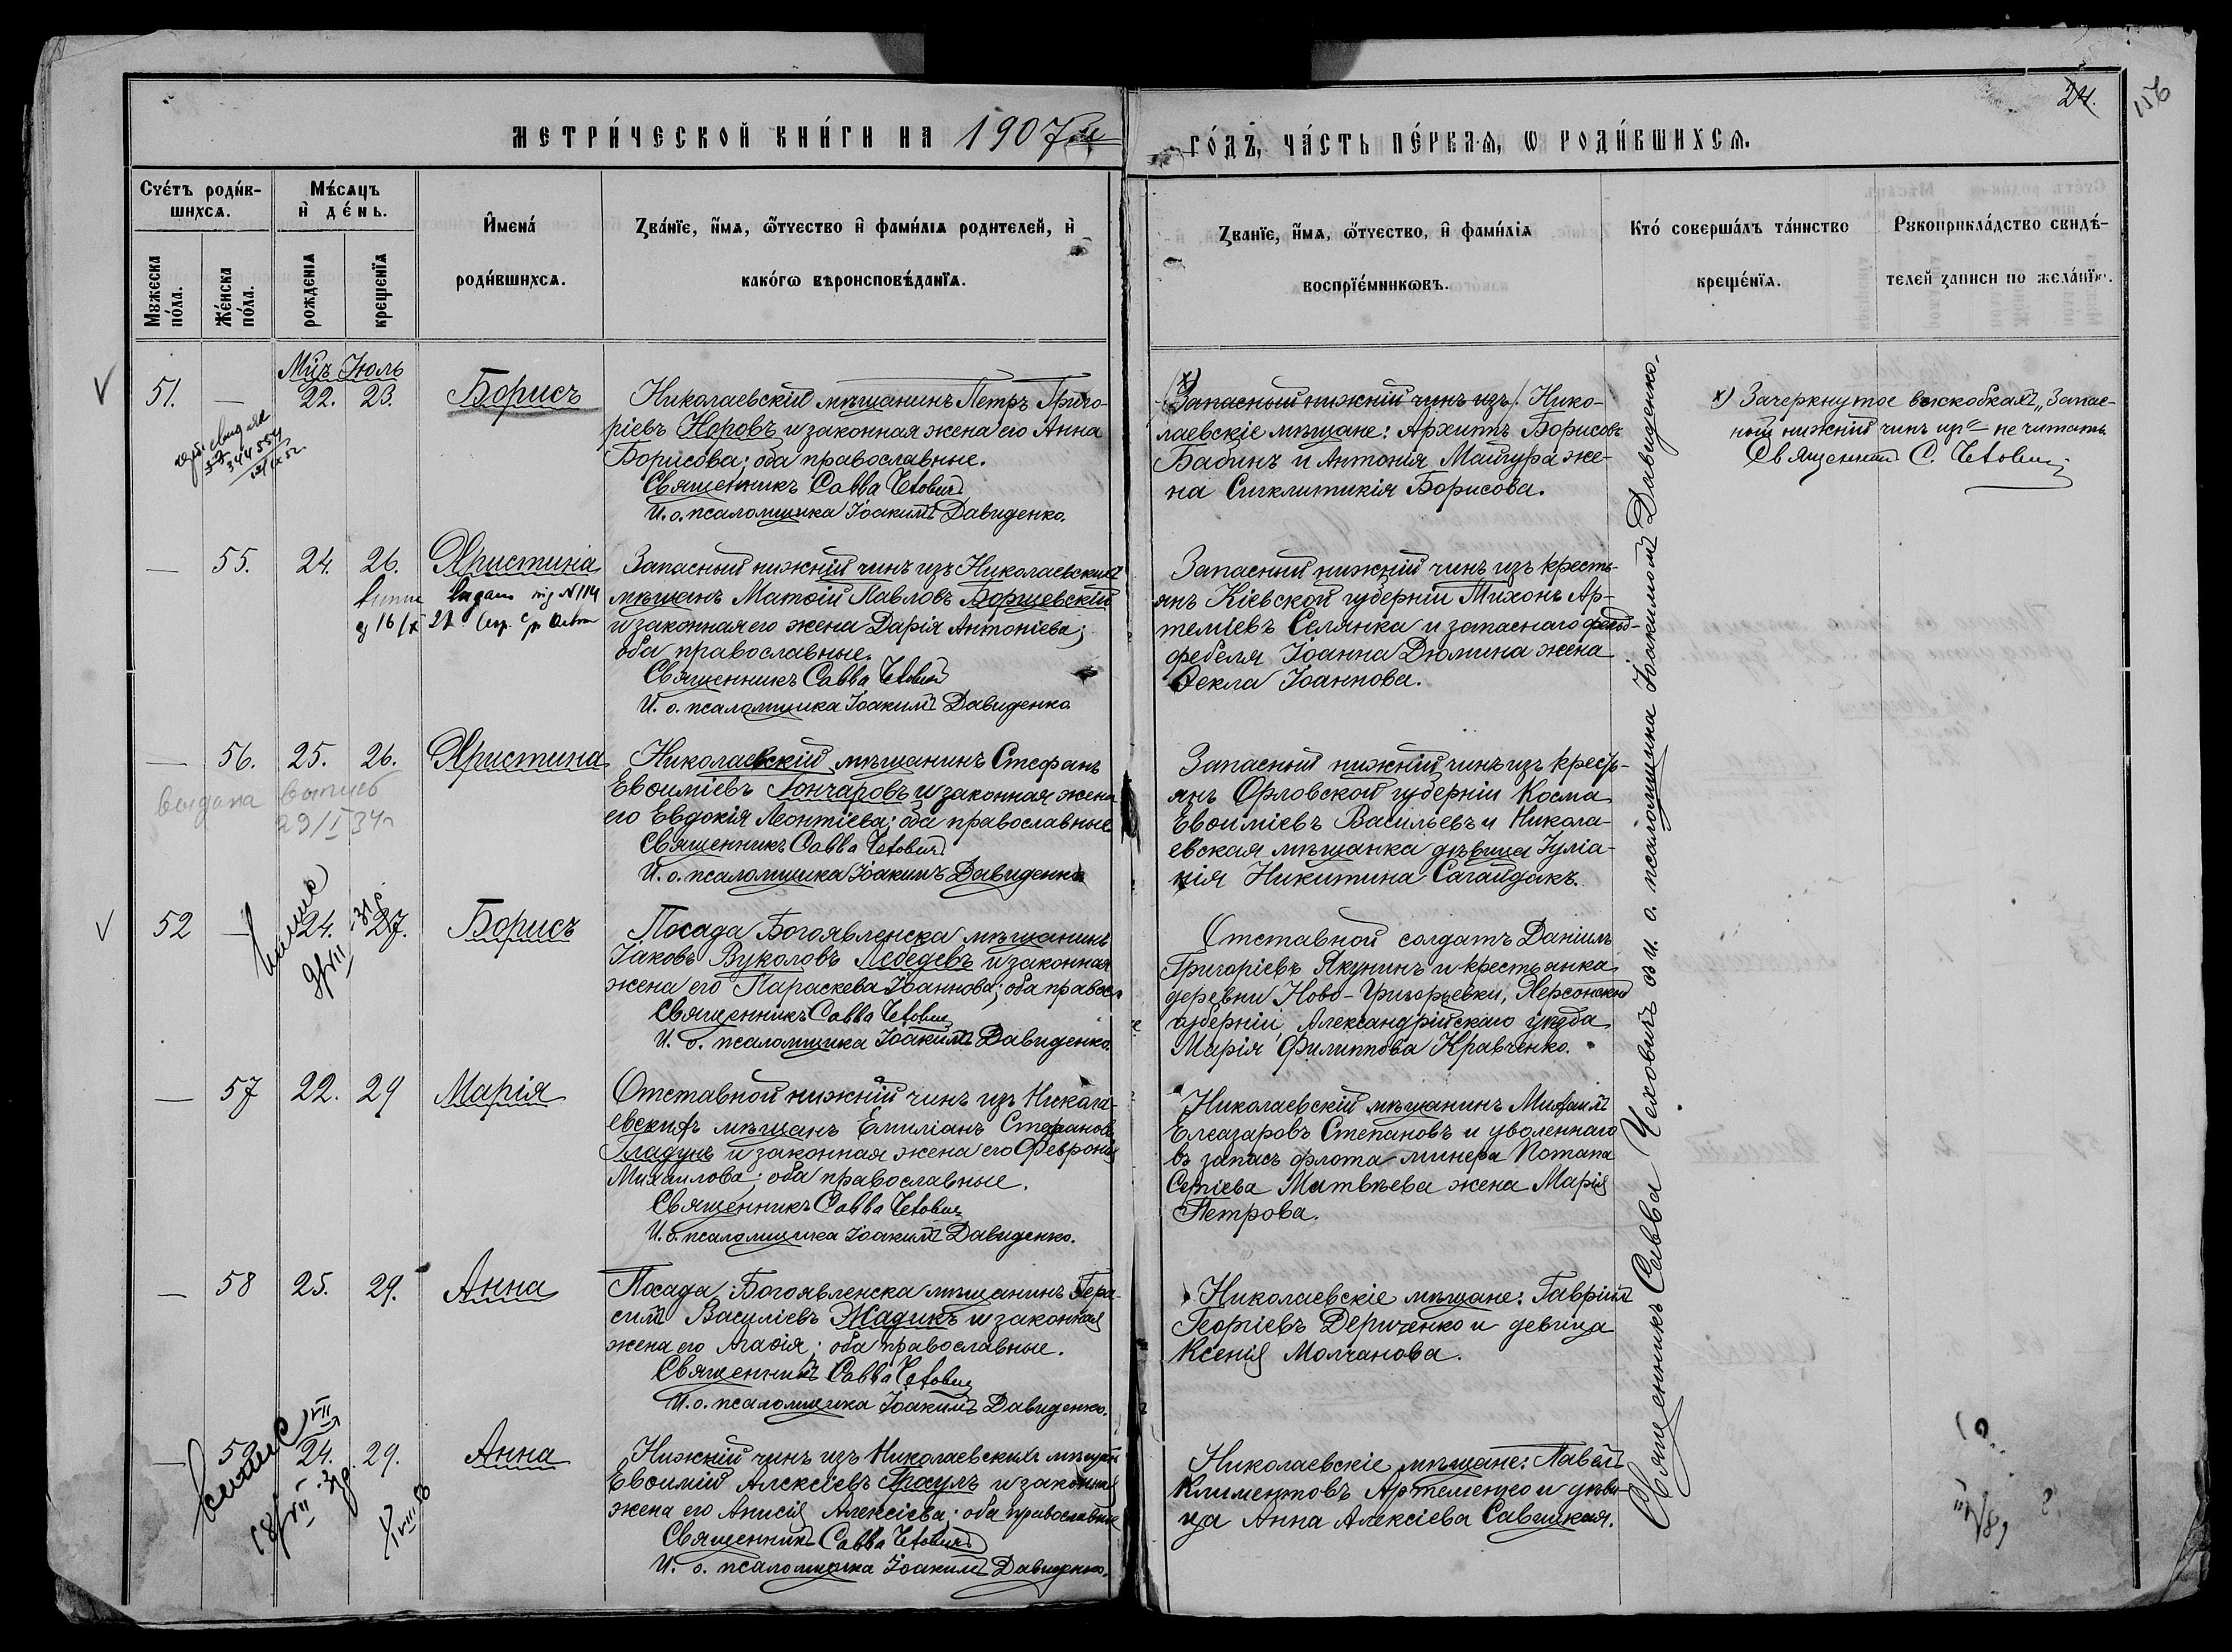 МЕТРИ́ЧЕСКОЙ КНИ́ГИ НА 1907й
ГО́ДЪ, ЧА́СТЬ ПЕ́РВАѦ, Ѡ РОДИ́ВШИХСѦ.
24.
156
Счётъ роди́в-
шихсѧ.
Мѣ́сѧцъ
и҆ де́нь.
И҆мена́
роди́вшихсѧ.
Зва́нїе, и҆́мѧ, ѻ҆́тчество и҆ фами́лїѧ родителей, и҆
како́гѡ вѣроисповѣ́данїѧ.
Зва́нїе, и҆́мѧ, ѻ҆́тчество, и҆ фами́лїѧ
воспрїе́мникѡвъ.
Кто́ соверша́лъ та́инство
креще́нїѧ.
Рꙋкоприкла́дство свидѣ́-
телей записи по жела́нїю.
Мꙋжеска
по́ла.
Же́нска
по́ла.
рожденїѧ
крещенїѧ
Мцъ Іюль
51. — 22. 23. Борисъ
Николаевскій мѣщанинъ Петръ Григо-
ріевъ Норовъ и законная жена его Анна
Борисова; оба православные.
Священникъ Савва Чехович
И. о. псаломщика Іоакимъ Давиденко.
х)
(Запасный нижній чинъ изъ). Нико-
лаевскіе мѣщане: Архипъ Борисовъ
Бабинъ и Антонія Майгура же-
на Сигклитикія Борисова.
х) Зачеркнутое въ скобкахъ „Запас-
ной нижній чинъ изъ" не читать
Священникъ С. Чехович
344554
— 55. 24. 26. Христина
Запасный нижній чинъ изъ Николаевскихъ
мѣщанъ Матѳій Павловъ Борщевскій
и законная его жена Дарія Антоніева;
оба православные.
Священникъ Савва Чехович
И. о. псаломщика Іоакимъ Давиденко
Запасный нижній чинъ изъ кресть-
янъ Кіевской губерніи Тихонъ Ар-
теміевъ Селянка и запаснаго фельд-
фебеля Іоанна Дюмина жена
Ѳекла Іоаннова.
— 56. 25. 26. Христина
выдана выпись
29/I 34г
Николаевскій мѣщанинъ Стефанъ
Евѳиміевъ Гончаровъ и законная жена
его Евдокія Леонтіева; оба православные.
Священникъ Савва Чехович
И. о. псаломщика Іоакимъ Давиденко
Запасный нижній чинъ изъ кресть-
янъ Орловской губерніи Косма
Евѳиміевъ Васильевъ и Никола-
евская мѣщанка дѣвица Іуліа-
нія Никитина Сагайдакъ.
52 — 24. 27. Борисъ
Посада Богоявленска мѣщанинъ
Іаковъ Вуколовъ Лебедевъ и законная
жена его Параскева Іоаннова; оба правос.
Священникъ Савва Чехович
И. о. псаломщика Іоакимъ Давиденко.
Отставной солдатъ Даніилъ
Григоріевъ Якунинъ и крестьянка
деревни Ново-Григорьевки, Херсонской
губерніи Александрійскаго уѣзда
Марія Филиппова Кравченко.
— 57 22. 29 Марія
Отставной нижній чинъ изъ Никола-
евскихъ мѣщанъ Емиліанъ Стефановъ
Гладунъ и законная жена его Февронія
Михаилова; оба православные.
Священникъ Савва Чехович
И. о. псаломщика Іоакимъ Давиденко.
Николаевскій мѣщанинъ Михаилъ
Елеазаровъ Степановъ и уволеннаго
въ запасъ флота минера Романа
Сергіева Матвѣева жена Марія
Петрова.
— 58 25. 29. Анна
Посада Богоявленска мѣщанинъ Гера-
симъ Василіевъ Жадикъ и законная
жена его Агаѳія; оба православные.
Священникъ Савва Чехович
И. о. псаломщика Іоакимъ Давиденко.
Николаевскіе мѣщане: Гавріилъ
Георгіевъ Дериченко и девица
Ксенія Молчанова.
— 59 24. 29. Анна
Нижній чинъ изъ Николаевскихъ мѣщанъ
Евѳимій Алексіевъ и законная
жена его Анисія Алексіева; оба православные
Священникъ Савва Чехович
И. о. псаломщика Іоакимъ Давиденко.
Николаевскіе мѣщане: Павелъ
Климентовъ Артеменко и дѣви-
ца Анна Алексіева Савицкая.
Священникъ Савва Чеховичъ и и. о. псаломщика Іоакимомъ Давиденко.